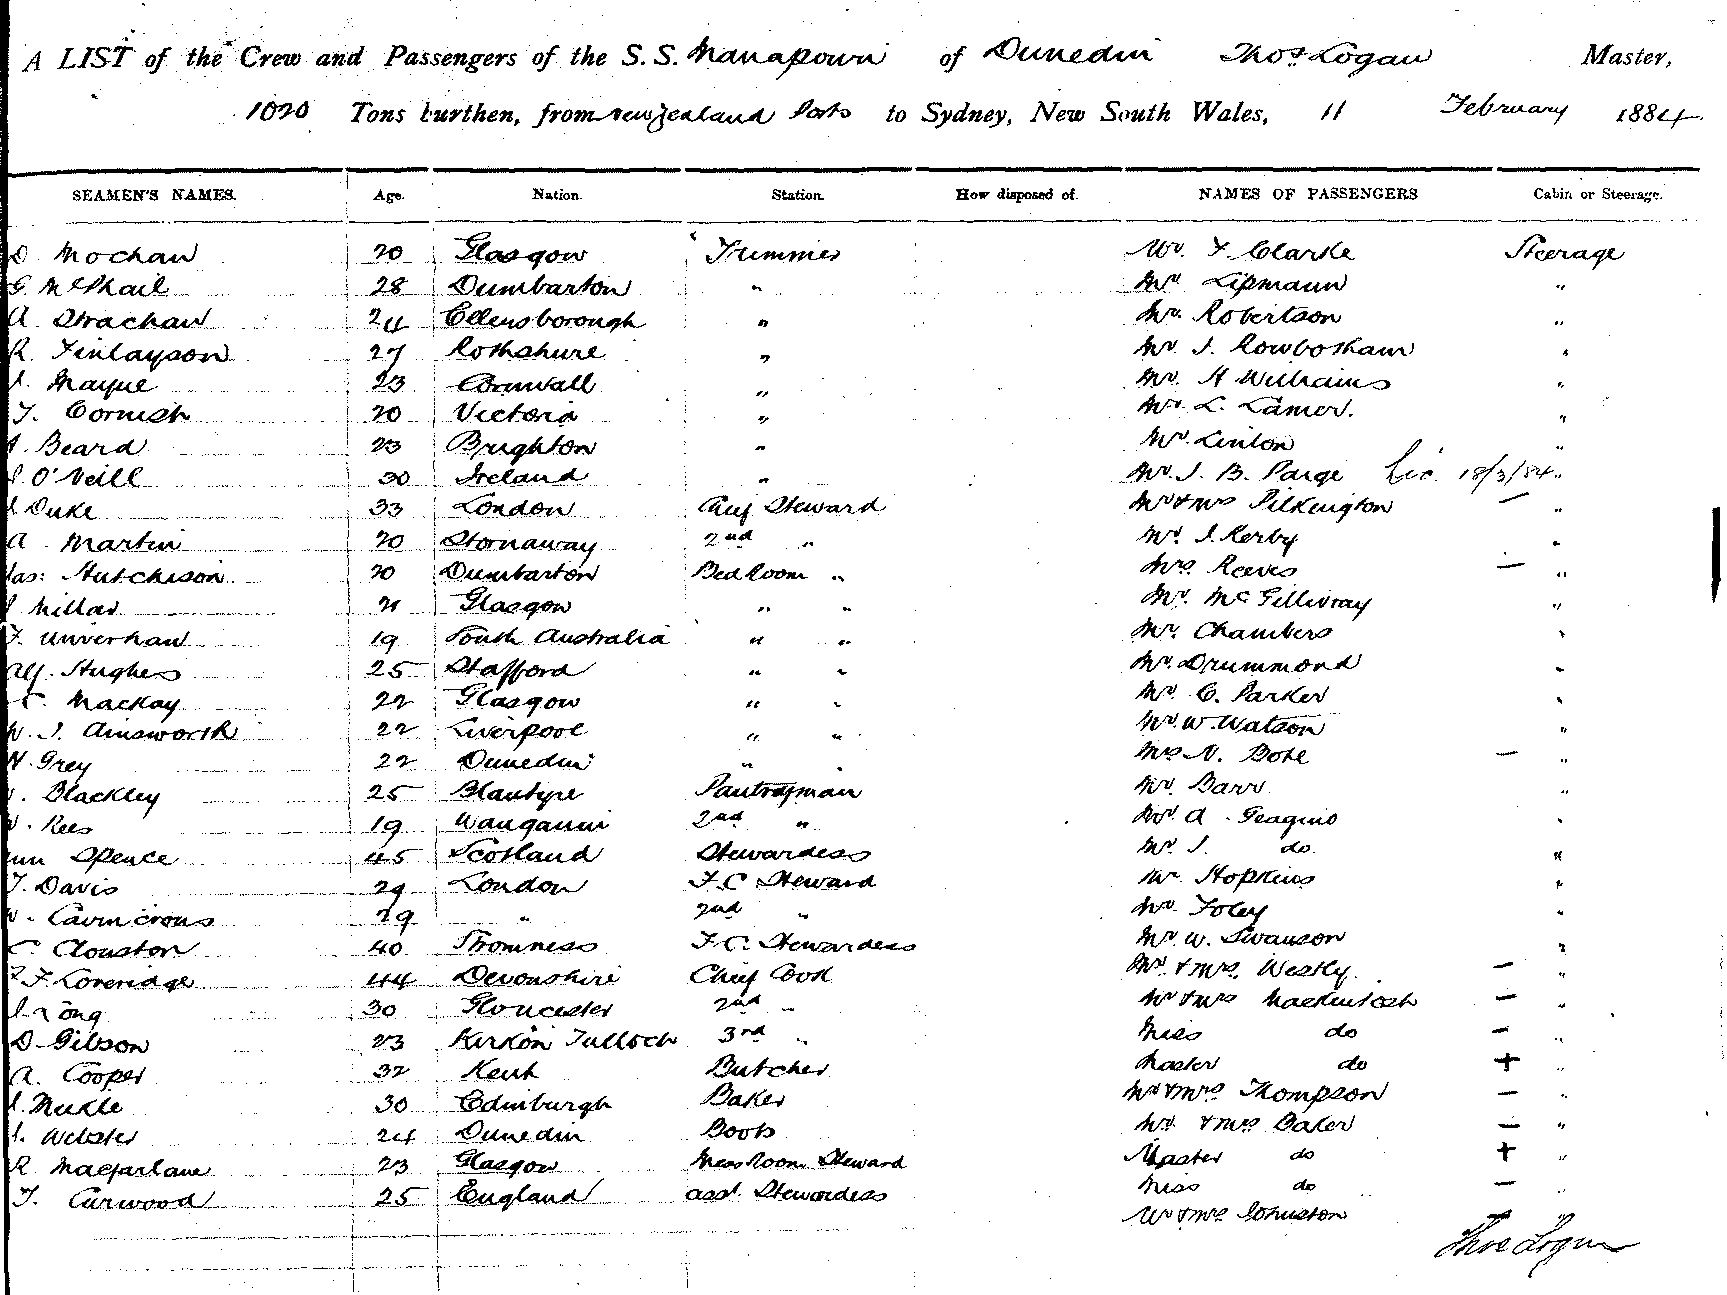 A LIST of the Crew and Passengers of the S. S. Manapouri of Dunedin Thos Logan Master,
1020 Tons burthen, from New Zealand Ports to Sydney, New South Wales, 11 February 1884
SEAMEN'S NAMES. Age. Nation. Station. How disposed of. NAMES OF PASSENGERS Cabin or Steerage.
D Mochan 20 Glasgow Trimmer Mr. F. Clarke Steerage
G McPhail 28 Dumbarton " Mr Lipmann "
A Strachan 24 Ellensborough " Mr. Robertson "
R. Finlayson 27 Rothshire " Mr J. Rowbotham "
J. Mayne 23 Cornwall " Mr. H Williams "
T. Cornish 20 Victoria " Mr. L. Lamer. "
Beard 23 Brighton " Mr. Linton "
J O'Neill 30 Ireland " Mr. J. B. Paige Lic 18/3/84 "
J Duke 33 London Chief Steward Mr & Mrs Pilkington — "
A Martin 20 Stornaway 2nd " Mr. J. Kerby "
Jas: Hutchison 20 Dumbarton Bed Room " Mrs Reeves — "
J Millar 21 Glasgow " " Mr. McGillivray "
F. Unverhau 19 South Australia " " Mr. Chambers "
Alf. Hughes 25 Stafford " " Mr. Drummond "
C. Mackay 22 Glasgow " " Mr C. Parker "
W. J. Ainsworth 22 Liverpool " " Mr. W. Watson "
H. Grey 22 Dunedin " " Mrs N. Bohl — "
Blackley 25 Blantyre Pantryman Mr. Barr "
W. Rees 19 Wanganui 2nd " Mr A. Geagino "
Spence 45 Scotland Stewardess Mr. J. do "
T. Davis 29 London F. C Steward Mr. Hopkins "
W. Cairncross 29 " 2nd " Mr Foley "
C Clouston 40 Stromness F. C. Stewardess Mr W. Swanson "
F Loveridge 44 Devonshire Chief Cook Mr. & Mrs. Westly — "
J. Long 30 Gloucester 2nd " Mr & Mrs Mackintosh — "
D Gibson 23 Kirkon Tulloch 3rd " Miss do — "
A. Cooper 32 Kent Butcher Master do + "
J. Meikle 30 Edinburgh Baker Mr & Mrs Thompson — "
J. Webster 24 Dunedin Boots Mr & Mrs Baker — "
R Macfarlane 23 Glasgow Mess Room Steward Master do + "
T. Curwood 25 England asst Stewardess Miss do — "
Mr & Mrs Johnston — "
Thos Logan